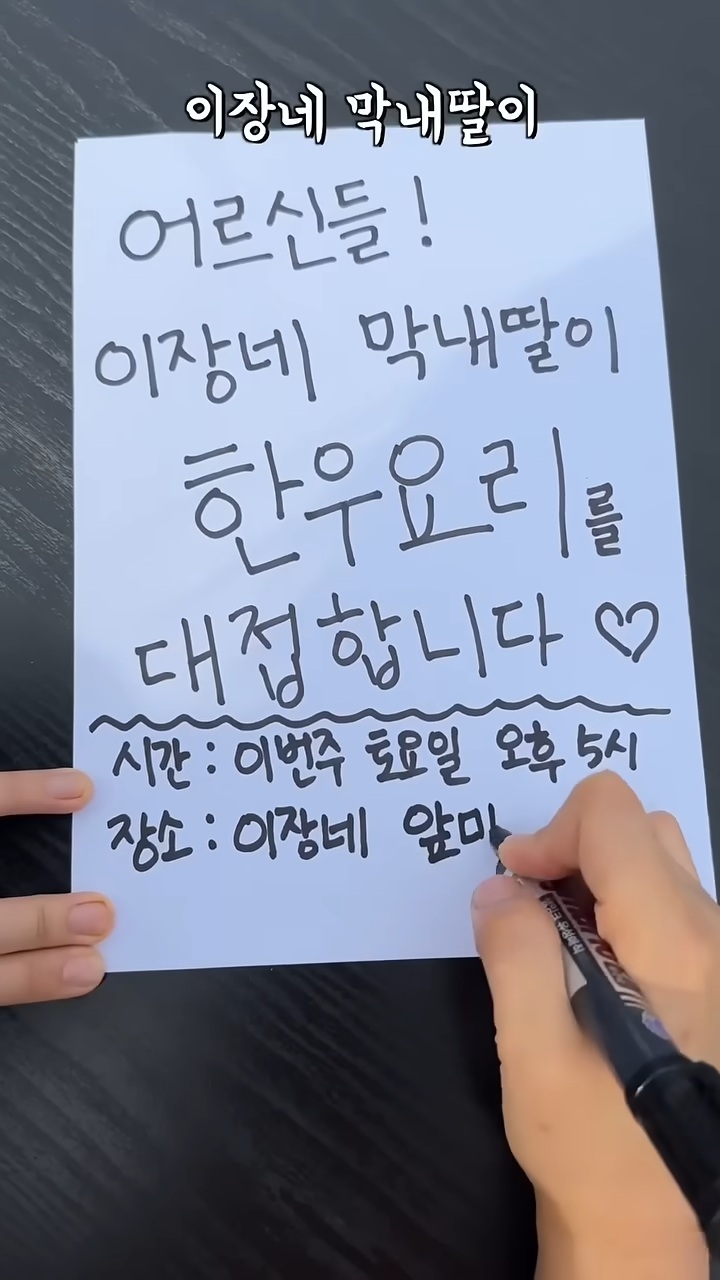 이장네 막내딸이
어르신들!
이장네 막내딸이
한우요리를
대접합니다♡
시간 : 이번주 토요일 오후 5시
장소 : 이장네